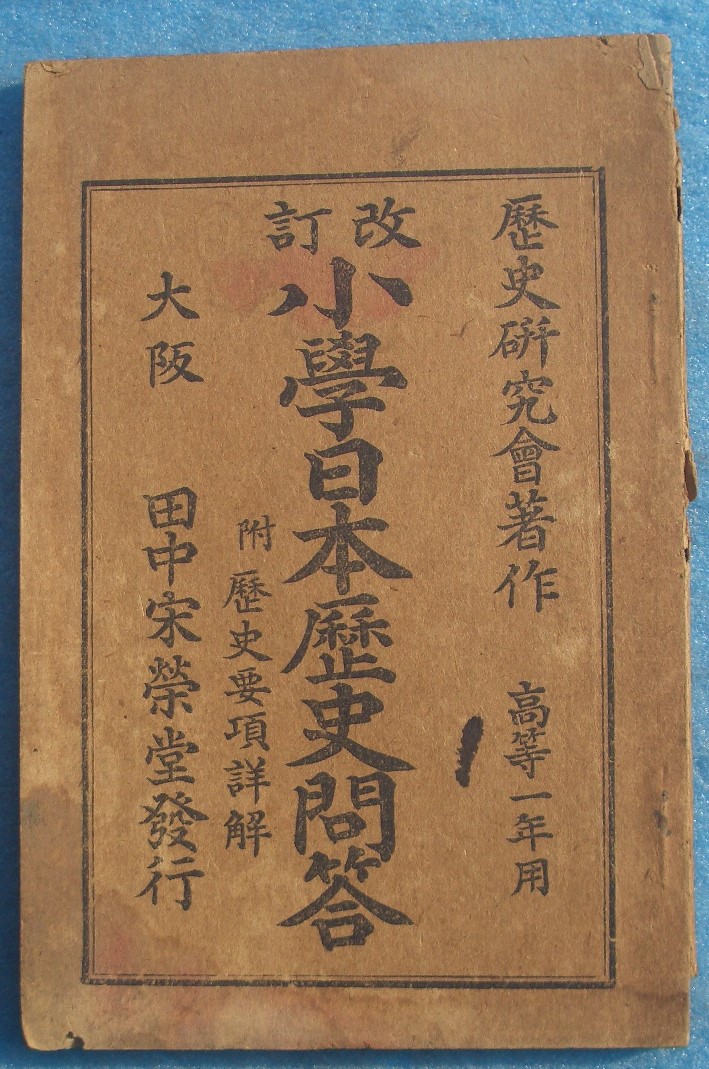 歷史硏究會著作 高等一年用
改訂
小學日本歷史問答
附 歷史要項詳解
大阪 田中宋榮堂發行